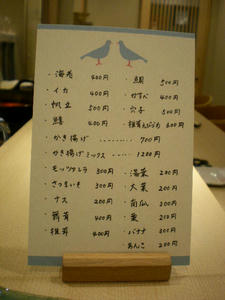 ・海老 400円
・イカ 400円
・帆立 500円
・鱚 400円
・鯛 500円
・かすべ 400円
・穴子 500円
・椎茸えびしんじょ 600円
・かき揚げ ………… 700円
・かき揚げミックス ……… 1200円
・モッツァレラ 300円
・さつまいも 300円
・ナス 200円
・舞茸 400円
・椎茸 400円
・大葉 200円
・南瓜 300円
・栗
・バナナ 300円
・あんこ 200円